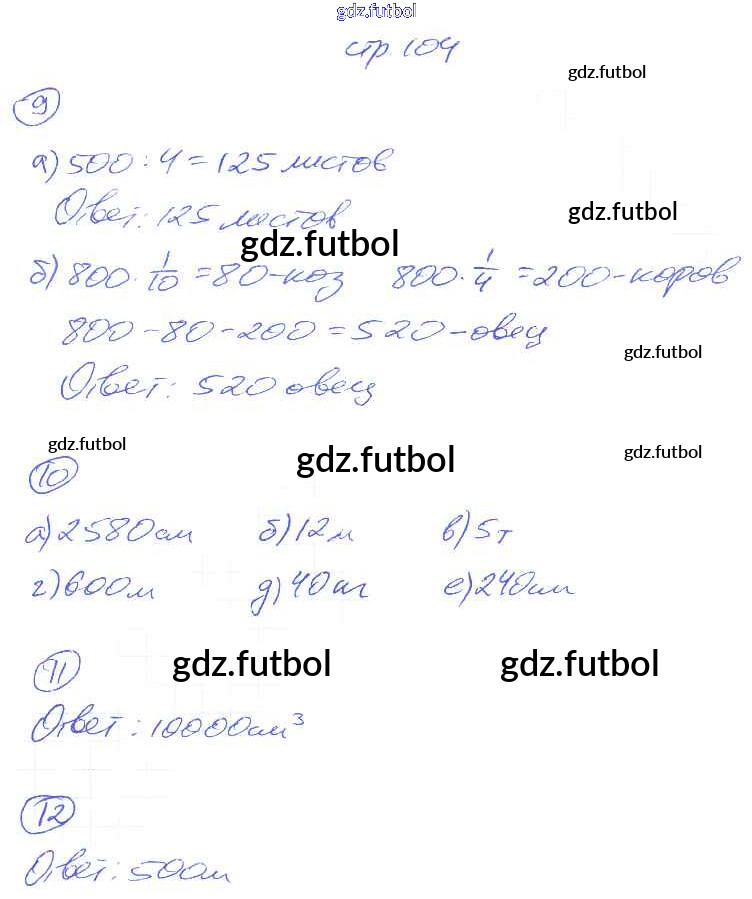 gdz.futbol
стр. 104
gdz.futbol
9
а) 500 : 4 = 125 листов
Ответ: 125 листов
gdz.futbol
gdz.futbol
б) 800 · 1/10 = 80 - коз 800 · 1/4 = 200 - коров
800 - 80 - 200 = 520 - овец
gdz.futbol
Ответ: 520 овец
gdz.futbol
gdz.futbol
gdz.futbol
10
а) 2580 см б) 12 м в) 5 т
г) 600 м д) 40 кг е) 240 см
11
gdz.futbol
gdz.futbol
Ответ: 10000 см³
12
Ответ: 50 см